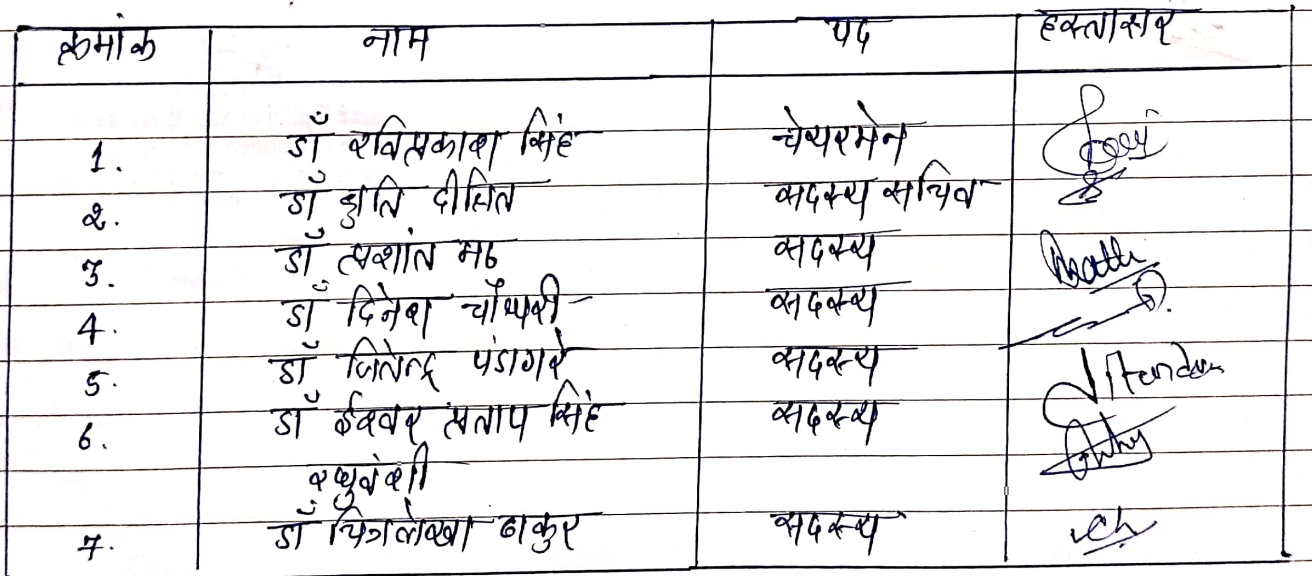 क्रमांक नाम पद हस्ताक्षर
1. डॉ रविप्रकाश सिंह चेयरमेन
2. डॉ द्युति दीक्षित सदस्य सचिव
3. डॉ प्रशांत मठ सदस्य
4. डॉ दिनेश चौधरी सदस्य
5. डॉ जितेन्द्र पंडागरे सदस्य Jitendra
6. डॉ ईश्वर प्रताप सिंह सदस्य
रघुवंशी
7. डॉ चित्रलेखा ठाकुर सदस्य